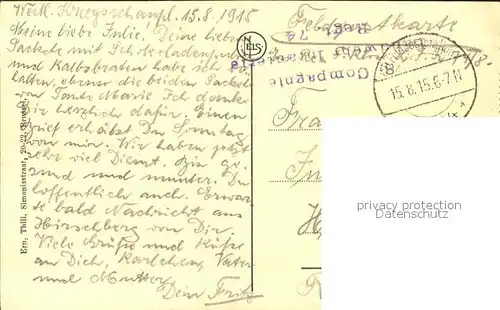 Westl. Kriegsschaupl. 15.8.1915
Meine liebe Julie, Deine lieben
Packete mit Schokoladenpud
und Kalbsbraten habe ich er
halten, ebenso die beiden Packete
von Tante Marie. Ich danke
Dir herzlich dafür. Einen
Brief erhältst Du Sonntag
von mir. Wir haben jetzt
sehr viel Dienst. Bin ge-
sund und munter. Du
hoffentlich auch. Erwar-
te bald Nachricht aus
Hirschberg von Dir.
Viele Grüße und Küsse
an Dich, Karlchen, Vater
und Mutter
Dein Fritz
Ern. Thill,
NELS
Feldpostkarte
8. Compagnie
Landwehr Infanterie
Regt. 74
15.8.15.6-7N
Fra
H
privacy protection
my-lexikon